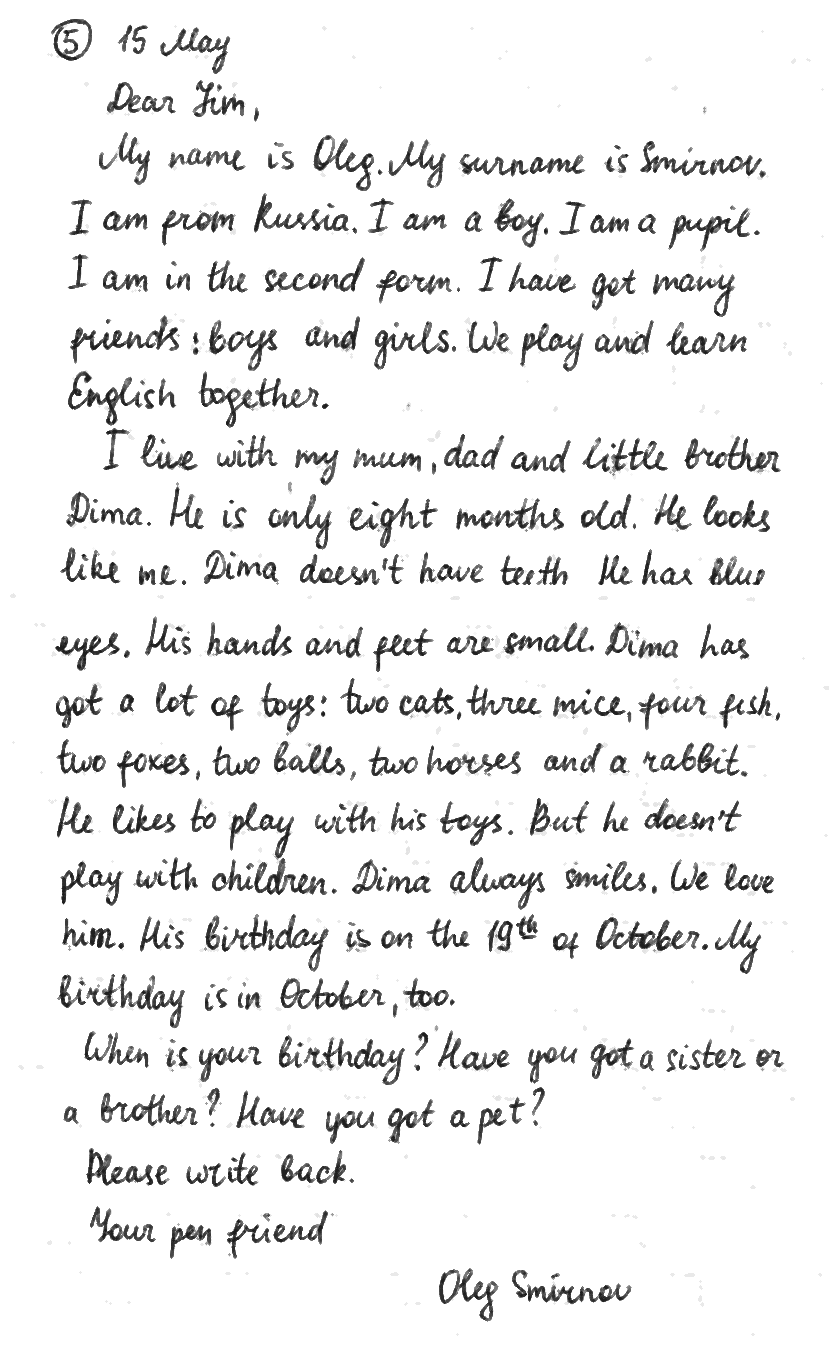 5 15 May
Dear Jim,
My name is Oleg. My surname is Smirnov.
I am from Russia. I am a boy. I am a pupil.
I am in the second form. I have got many
friends: boys and girls. We play and learn
English together.
I live with my mum, dad and little brother
Dima. He is only eight months old. He looks
like me. Dima doesn't have teeth He has blue
eyes. His hands and feet are small. Dima has
got a lot of toys: two cats, three mice, four fish,
two foxes, two balls, two horses and a rabbit.
He likes to play with his toys. But he doesn't
play with children. Dima always smiles. We love
him. His birthday is on the 19th of October. My
birthday is in October, too.
When is your birthday? Have you got a sister or
a brother? Have you got a pet?
Please write back.
Your pen friend
Oleg Smirnov